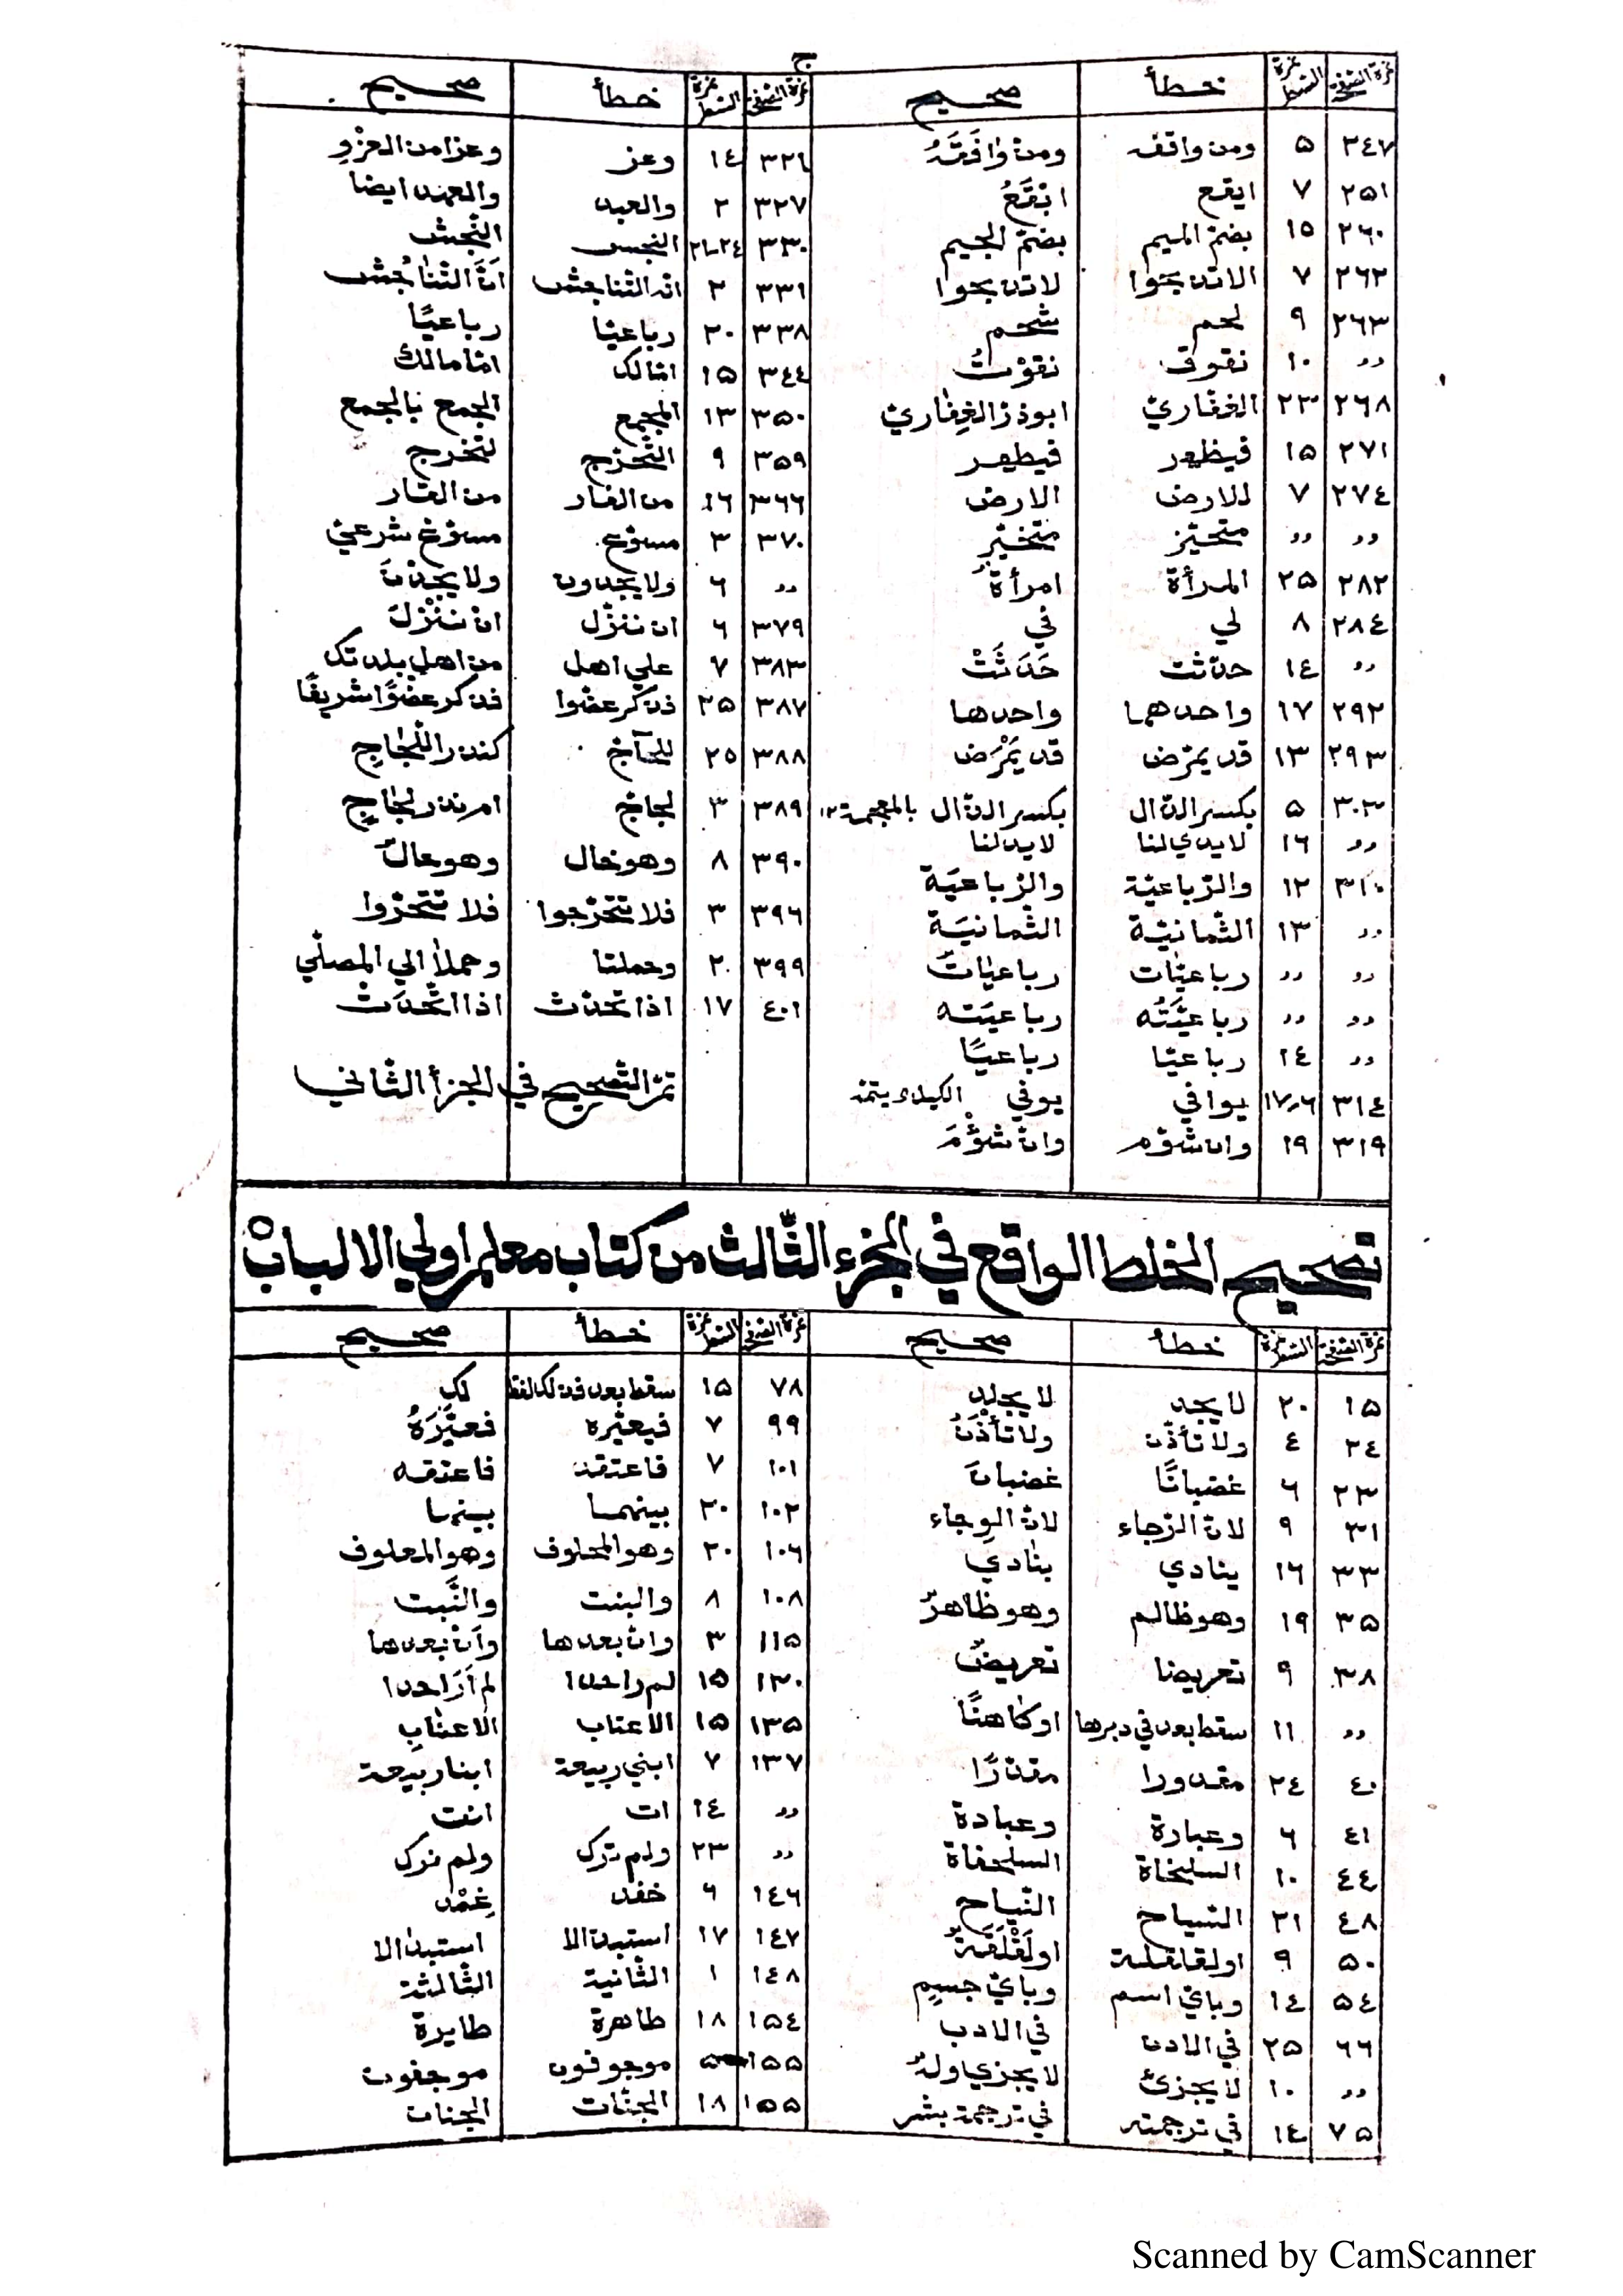 ج
نمرة الصفحة نمرة السطر خطأ صحيح
٢٤٧ ٥ ومن واقف ومن وَافَقَهُ
٢٥١ ٧ ايقع
٢٦٠ ١٥ بضم الميم بضم الجيم
٢٦٣ ٩ لحم شحم
٢٦٨ ٢٣ الغفاريّ ابوذرّ الغِفاريّ
٢٧٤ ٧ للارض الارض
٢٨٢ ٢٥ المرأة امرأة
٢٨٤ ٨ لي في
٫٫ ١٤ حدّثت حَدَثَتْ
٢٩٢ ١٧ واحدهما واحدها
٢٩٣ ١٣ قد يمرّض قد يَمْرَض
٣٠٣ ٥ بكسر الدّال بكسر الذّال بالمعجمة ١٢
٫٫ ١٦ لا يدي لنا لا يد لنا
٣١٠ ١٢ والرّباعيّة والرّباعيَة
٫٫ ١٣ الثّمانيّة الثّمانيَة
٫٫ ٫٫ رباعيّات رباعيَات
٫٫ ٫٫ رباعيّتُه رباعيَته
٫٫ ١٤ رباعيّا رباعيًا
٣١٤ ١٦ر١٧ يوافي يوفي
٣١٩ ١٩ وان شوّم وان شُؤْمَ
نمرة الصفحة نمرة السطر خطأ صحيح
٣٢٦ ١٤ وعز وعزا من العزْوِ
٣٢٧ ٢ والعبد والعبد ايضا
٣٣٠ النجس النّجش
٣٣١ ٢ انه التناجش انّ التّناجُش
٣٣٨ ٢٠ رباعيّا رباعيًا
٣٤٤ ١٥ امّالك امّا مالك
٣٥٠ ١٣ المجمع الجمع بالجمع
٣٥٩ ٩ التّخرّج لتخرج
٣٦٦ ١٦ من الغار من العار
٣٧٠ ٣ مسوّع مسوّغ شرعيّ
٫٫ ٦ ولا يجدون ولا يجدنَ
٣٧٩ ٦ ان ننزّل ان ننْزلَ
٣٨٣ ٧ علي اهل من اهل بلدتك
٣٨٧ ٢٥ فذكر عضوا فذكر عضوًا شريفًا
٣٨٨ ٢٥
٣٨٩ ٣
٣٩٠ ٨ وهو خال وهو حالٌ
٣٩٦ ٣ فلا تتخرّجوا فلا تتحرّوا
٣٩٩ ٢٠ وحملتا وحملا الي المصلّي
٤٠١ ١٧ اذا تحدّث اذا اتّحدَتْ
تمّ التّصحيح في الجزأ الثّاني
تصحيح الخلط الواقع في الجزء الثّالث من كتاب معلم اولي الالباب
نمرة الصفحة نمرة السطر خطأ صحيح
١٥ ٢٠ لا يجد لا يجلد
٢٤ ٤ ولا تأذّن ولا تأْذَنُ
٢٣ ٦ غضبانًا غضبانَ
٣١ ٩ لان الرّجاء لان الوِجاء
٣٣ ١٦ ينادي بنادي
٣٥ ١٩ وهو ظالم وهو ظاهرٌ
٣٨ ٩ تعريضا تعريضٌ
٫٫ ١١ سقط بعد في دبرها او كاهنًا
٤٠ ٢٤ مقدورا مقدّرًا
٤١ ٦ وعبارة وعبادة
٤٤ ١٠ السلخاة السلحفاة
٤٨ ٢١
٥٠ ٩ اولقلقلة اولَقْلَقَةٌ
٥٤ ١٤ وبايّ اسم وبايّ جسمٍ
٦٦ ٢٥ في الادن في الادب
٫٫ ١٠ لا يجزئ لا يجزي ولدٌ
٧٥ ١٤ في ترجمته في ترجمة بشر
نمرة الصفحة نمرة السطر خطأ صحيح
٧٨ ١٥ سقط بعد فذلك لفظ لك
٩٩ ٧ فيعيّره فعيّرَهُ
١٠١ ٧ فاعتقد فاعتقه
١٠٢ ٢٠ بينهما بينما
١٠٦ ٢٠ وهو المحلوف وهو المعلوف
١٠٨ ٨ والبنت والنَّبت
١١٥ ٣ وان بعدها وانّ بعدها
١٣٠ ١٥ لم راحدا لم أرَ احدا
١٣٥ ١٥ الاعناب الاعنابِ
١٣٧ ٧ ابني ربيعة ابنا ربيعة
٫٫ ١٤ ات انت
٫٫ ٢٣ ولم تزك ولم نزك
١٤٦ ٦ خفد غِمْد
١٤٧ ١٧ استبدالا
١٤٨ ١ الثّانية الثّالثة
١٥٤ ١٨ طاهرة طايرة
١٥٥ ٥ موجوفون موجفون
١٥٥ ١٨ الجنّات
Scanned by CamScanner